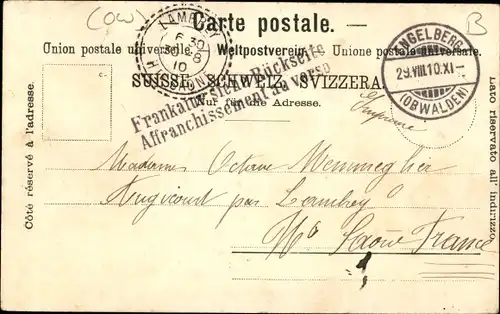 (OW)
B
Carte postale.
Union postale universelle. — Weltpostverein. — Unione postale universale.
SUISSE. SCHWEIZ. SVIZZERA.
Nur für die Adresse.
Côté réservé à l'adresse.
Lato riservato all'indirizzo.
6 30
10
ENGELBERG
29.VIII.10.XI-
(OBWALDEN)
Frankatur siehe Rückseite
Affranchissement au verso
Imprimé
Madame Octave
par
Hte Saône France